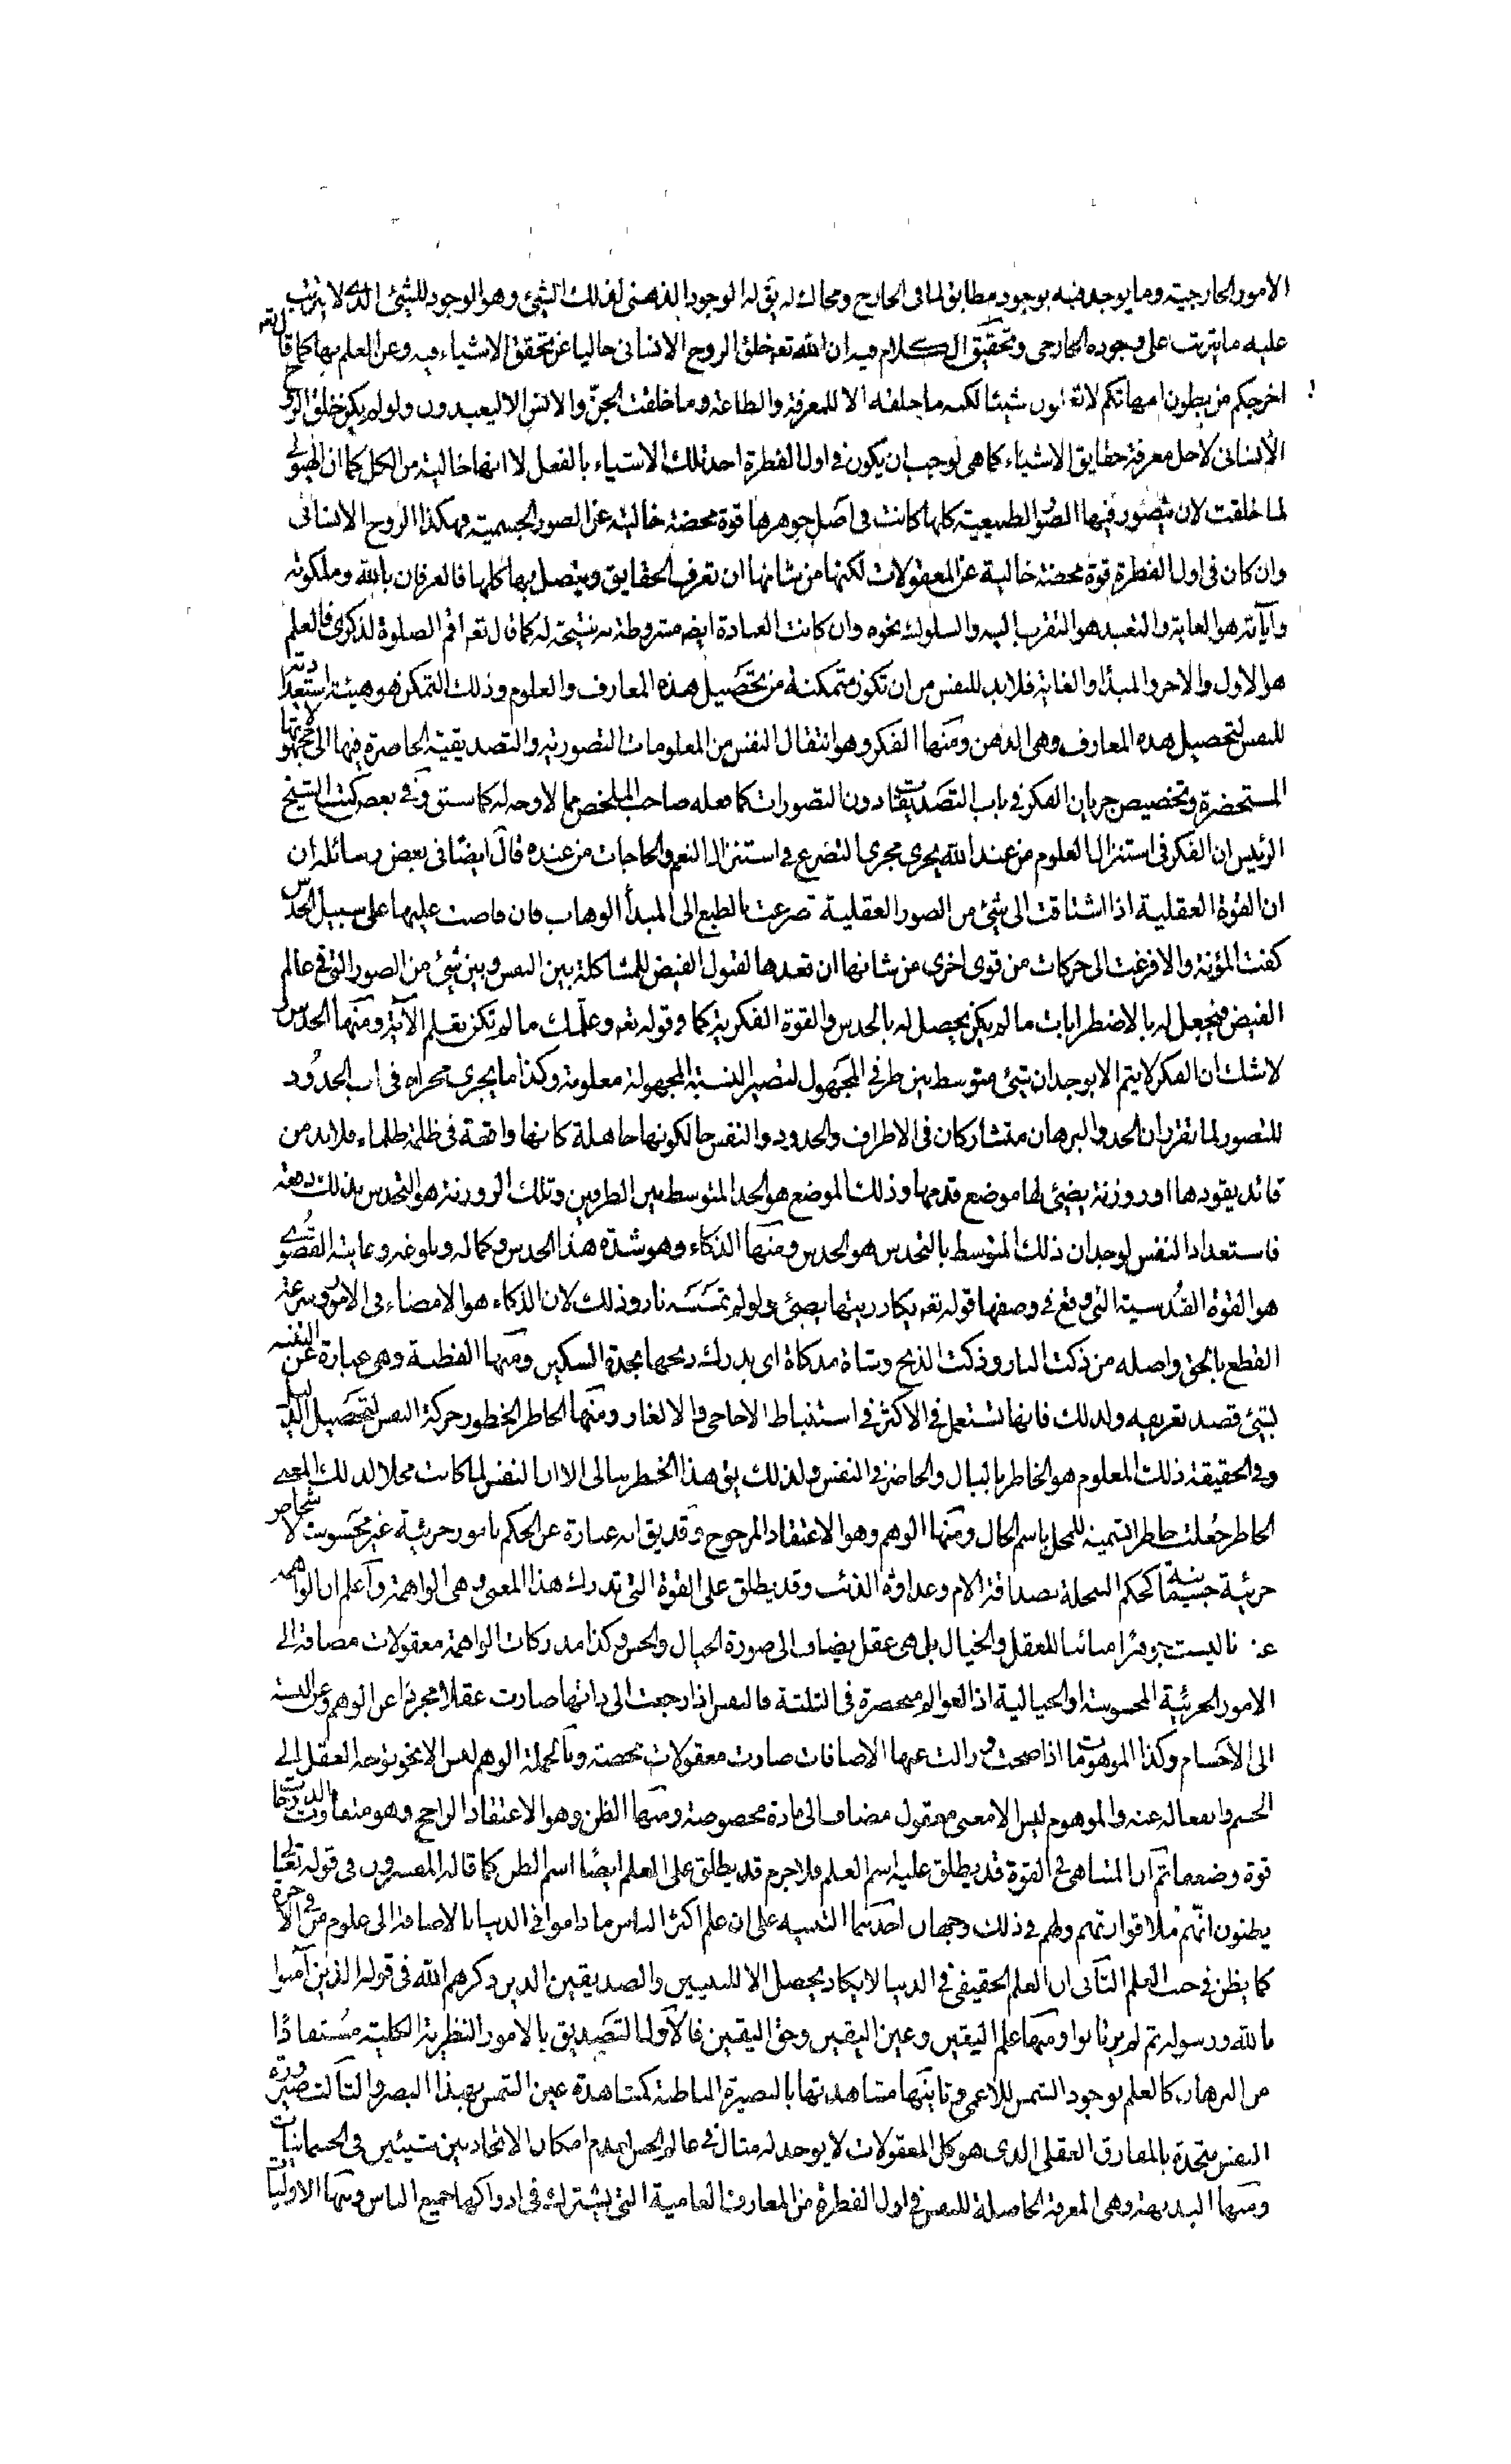 الامور الخارجية وما يوجد فيه بوجود مطابق لما فى الخارج ومحاك له يق له الوجود الذهنى لذلك الشئ وهو الوجود للشئ الذى لا يترتب
عليه ما يترتب على وجوده الخارجى وتحقيق الكلام فيه ان الله تعه خلق الروح الانسانى خاليا عن تحقق الاشياء فيه وعن العلم بها كما قال تعه
اخرجكم من بطون امهاتكم لا تعلمون شيئا لكنه ما خلقه الا للمعرفة والطاعة وما خلقت الجن والانس الا ليعبدون ولو لم يكن خلق الروح
الانسانى لاجل معرفة حقايق الاشياء كما هى لوجب ان يكون فى اول الفطرة احد تلك الاشياء بالفعل لا انها خالية من الكل كما ان الهيولى
لما خلقت لان يتصور فيها الصور الطبيعية كلها كانت فى اصل جوهرها قوة محضة خالية عن الصور الجسمية فهكذا الروح الانسانى
وان كان فى اول الفطرة قوة محضة خالية عن المعقولات لكنها من شانها ان تعرف الحقايق ويتصل بها كلها فالعرفان بالله وملكوته
وآياته هو الغاية والتعبد هو التقرب اليه والسلوك نحوه وان كانت العبادة ايضه مشروطة به نتيجة له كما قال تعه اقم الصلوة لذكرى فالعلم
هو الاول والاخر والمبدأ والغاية فلا بد للنفس من ان تكون متمكنة من تحصيل هذه المعارف والعلوم وذلك التمكن هو هيئة استعدادية
للنفس لتحصيل هذه المعارف وهى الذهن ومنها الفكر وهو انتقال النفس من المعلومات التصورية والتصديقية الحاضرة فيها الى مجهولاتها
المستحضرة وتخصيص جريان الفكر فى باب التصديقات دون التصورات كما فعله صاحب الملخص مما لا وجه له كما ستق وفى بعض كتب الشيخ
الرئيس ان الفكر فى استنزال العلوم من عند الله يجرى مجرى التضرع فى استنزال النعم والحاجات من عنده قال ايضا فى بعض رسائله ان
ان القوة العقلية اذا اشتاقت الى شئ من الصور العقلية تضرعت بالطبع الى المبدأ الوهاب فان فاضت عليها على سبيل الحدس
كفت المؤنة والا فزعت الى حركات من قوى اخرى من شانها ان تعدها لقبول الفيض للمشاكلة بين النفس وبين شئ من الصور التى فى عالم
الفيض فيحصل له بالاضطرابات ما لم يكن يحصل له بالحدس والقوة الفكرية كما فى قوله تعه وعلمك ما لم تكن تعلم الآية ومنها الحدس
لا شك ان الفكر لا يتم الا بوجدان شئ متوسط بين طرفى المجهول لتصير النسبة المجهولة معلومة وكذا ما يجرى مجراه فى باب الحدود
للتصور لما تقرر ان الحد والبرهان متشاركان فى الاطراف والحدود والنفس حال كونها جاهلة كانها واقعة فى ظلمة ظلماء فلا بد من
قائد يقودها او روزنة يضئ لها موضع قدمها وذلك الموضع هو الحد المتوسط بين الطرفين وتلك الروزنة هو التحدس بذلك دفعة
فاستعداد النفس لوجدان ذلك المتوسط بالتحدس هو الحدس ومنها الذكاء وهو شدة هذا الحدس وكماله وبلوغه وغايته القصوى
هو القوة القدسية التى وقع فى وصفها قوله تعه يكاد زيتها يضئ ولو لم تمسسه نار وذلك لان الذكاء هو الامضاء فى الامور وسرعة
القطع بالحق واصله من ذكت النار وذكت الذبح وشاة مذكاة اى يدرك ذبحها بحدة السكين ومنها الفطنة وهى عبارة عن التنبه
لشئ قصد تعريفه ولذلك فانها تستعمل فى الاكثر فى استنباط الاحاجى والالغاز ومنها الخاطر الخطور حركة النفس لتحصيل الدليل
وفى الحقيقة ذلك المعلوم هو الخاطر بالبال والحاضر فى النفس ولذلك يق هذا الخطر ببالى الا ان النفس لما كانت محلا لذلك المعنى
الخاطر جعلت خاطرا تسمية للمحل باسم الحال ومنها الوهم وهو الاعتقاد المرجوح وقد يق انه عبارة عن الحكم بامور جزئية غير محسوسة لاشخاص
جزئية جسمانية كحكم السخلة بصداقة الام وعداوة الذئب وقد يطلق على القوة التى تدرك هذا المعنى وهى الواهمة واعلم ان الواهمة
عندنا ليست جوهرا مباينا للعقل والخيال بل هى عقل يضاف الى صورة الخيال والحس وكذا مدركات الواهمة معقولات مضافة الى
الامور الجزئية المحسوسة او الخيالية اذ العوالم منحصرة فى الثلثة فالنفس اذا رجعت الى ذاتها صارت عقلا مجردا عن الوهم وعن النسبة
الى الاجسام وكذا الموهومات اذا صحت وزالت عنها الاضافات صارت معقولات محضة وبالجملة الوهم ليس الا نحو توجه العقل الى
الجسم وانفعاله عنه والموهوم ليس الا معنى معقول مضاف الى مادة مخصوصة ومنها الظن وهو الاعتقاد الراجح وهو متفاوت الدرجات
قوة وضعفا ثم ان المتناهى فى القوة قد يطلق عليه اسم العلم فلا جرم قد يطلق على العلم ايضا اسم الظن كما قاله المفسرون فى قوله تعالى
يظنون انهم ملاقوا ربهم ولهم فى ذلك وجهان احدهما التنبيه على ان علم اكثر الناس ما داموا فى الدنيا بالاضافة الى علوم من فى الاخرة
كما يظن فى جنب العلم الثانى ان العلم الحقيقى فى الدنيا لا يكاد يحصل الا للنبيين والصديقين الذين ذكرهم الله فى قوله الذين آمنوا
بالله ورسوله ثم لم يرتابوا ومنها علم اليقين وعين اليقين وحق اليقين فالاول التصديق بالامور النظرية الكلية مستفادا
من البرهان كالعلم بوجود الشمس للاعمى وثانيها مشاهدتها بالبصيرة الباطنة كمشاهدة عين الشمس بهذا البصر والثالث صيرورة
النفس متحدة بالمفارق العقلى الذى هو كل المعقولات لا يوجد له مثال فى عالم الحس لعدم امكان الاتحاد بين شيئين فى الجسمانيات
ومنها البديهة وهى المعرفة الحاصلة للنفس فى اول الفطرة من المعارف العامية التى يشترك فى ادراكها جميع الناس ومنها الاوليات